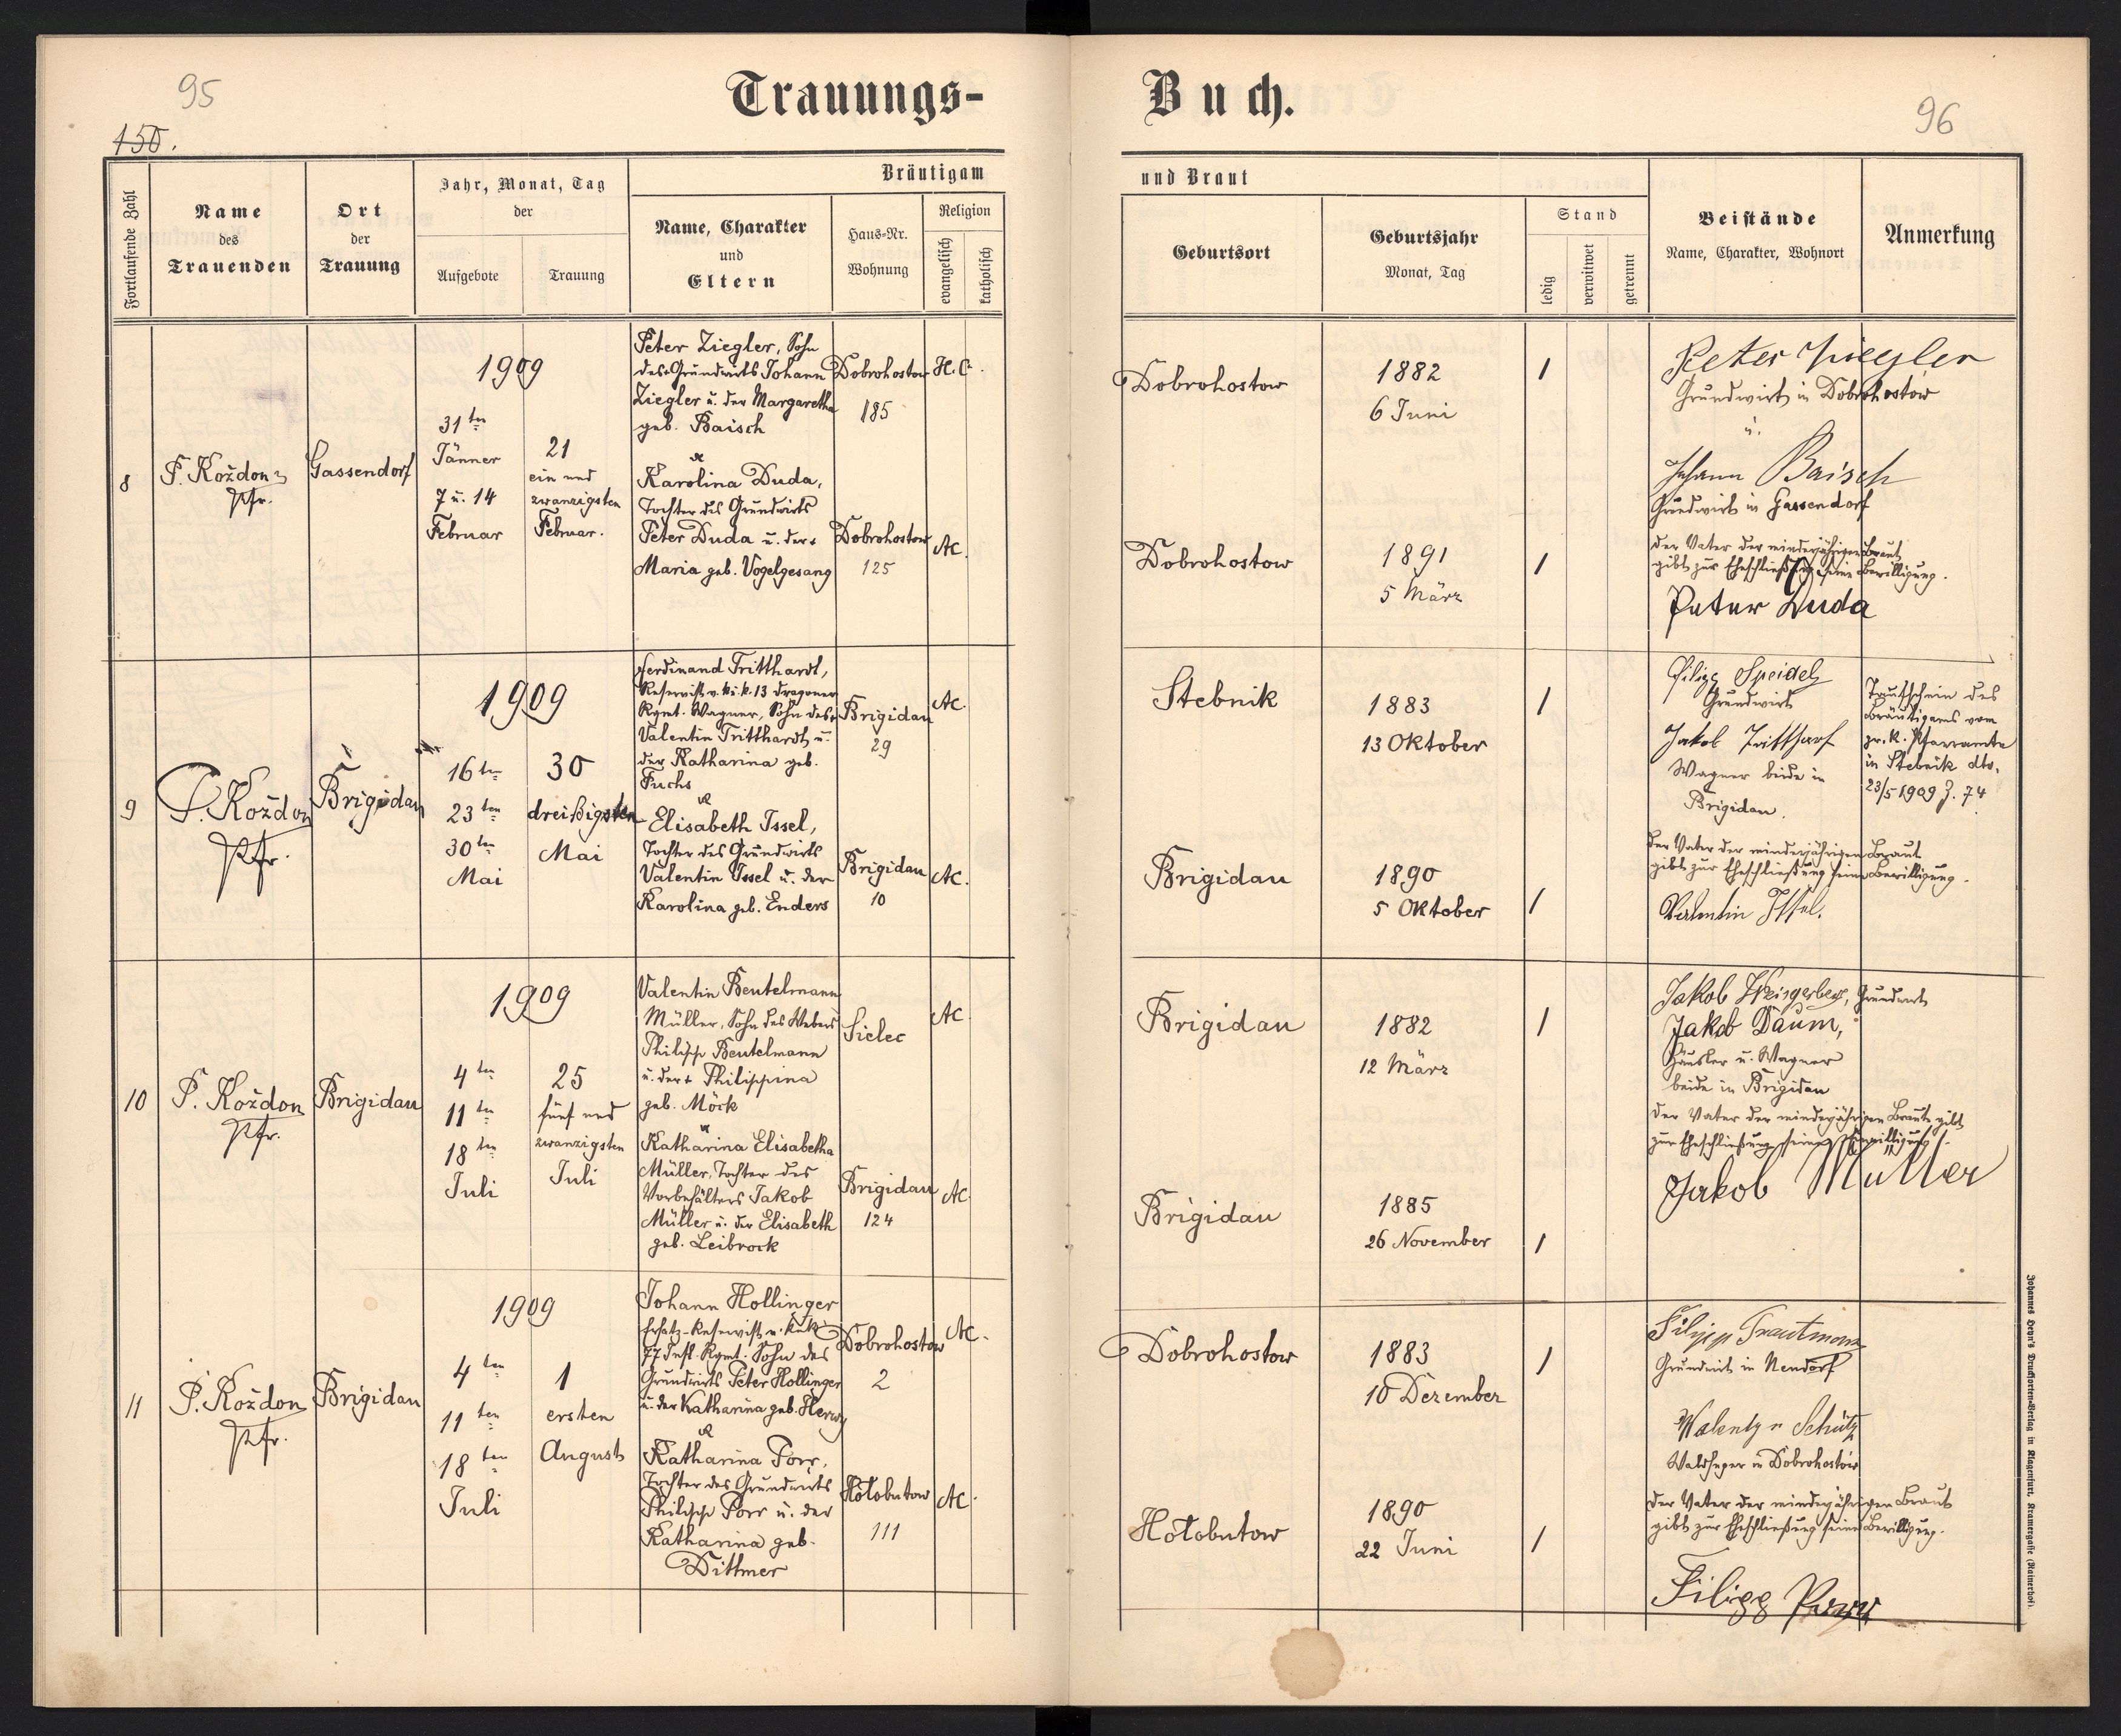 95
Trauungs-
150.
Fortlaufende Zahl
Name
des
Trauenden
Ort
der
Trauung
Jahr, Monat, Tag
der
Aufgebote
Trauung
Bräutigam
Name, Charakter
und
Eltern
Haus-Nr.
Wohnung
Religion
evangelisch
katholisch
8
P. Koždon
Pfr.
Gassendorf
1909
31ten
Jänner
7 u. 14
Februar
21
ein und
zwanzigsten
Februar.
Peter Ziegler, Sohn
des Grundwirts Johann
Ziegler u. der Margaretha
geb. Baisch
&
Karolina Duda,
Tochter des Grundwirts
Peter Duda u. der +
Maria geb. Vogelgesang
Dobrohostow
185
H.C.
Dobrohostow
125
AC.
9
P. Koždon
Pfr.
Brigidau
1909
16ten
23ten
30ten
Mai
30
dreißigsten
Mai
Ferdinand Tritthardt,
Reservist v. k. u. k. 13 Dragoner
Rgmt. Wagner, Sohn des +
Valentin Tritthardt u.
der Katharina geb.
Fuchs
&
Elisabeth Issel,
Tochter des Grundwirts
Valentin Issel u. der
Karolina geb. Enders
Brigidau
29
AC.
Brigidau
10
AC.
10
P. Koždon
Pfr.
Brigidau
1909
4ten
11ten
18ten
Juli
25
fünf und
zwanzigsten
Juli
Valentin Beutelmann
Müller, Sohn des Webers
Philipp Beutelmann
u. der + Philippina
geb. Möck
&
Katharina Elisabetha
Müller, Tochter des
Vorbehälters Jakob
Müller u. der Elisabeth
geb. Leibrock
Sielec
AC
Brigidau
124
AC
11
P. Koždon
Pfr.
Brigidau
1909
4ten
11ten
18ten
Juli
1
ersten
August
Johann Hollinger
Ersatz-Reservist v. k. u. k.
77 Inft. Rgmt. Sohn des
Grundwirts Peter Hollinger
u. der Katharina geb. Herwy
&
Katharina Porr,
Tochter des Grundwirts
Philipp Porr u. der
Katharina geb.
Dittmer
Dobrohostow
2
AC.
Hołobutow
111
AC.
Buch.
96
und Braut
Geburtsort
Geburtsjahr
Monat, Tag
Stand
ledig
verwitwet
getrennt
Beistände
Name, Charakter, Wohnort
Anmerkung
Dobrohostow
1882
6 Juni
1
Peter Ziegler
Grundwirt in Dobrohostow
u.
Johann Baisch
Grundwirt in Gassendorf
Dobrohostow
1891
5 März
1
Der Vater der minderjährigen Braut
gibt zur Eheschließung seine Bewilligung.
Peter Duda
Stebnik
1883
13 Oktober
1
Filipp Speidel
Grundwirt
Jakob Tritthart
Wagner beide in
Brigidau.
Taufschein des
Bräutigams vom
gr. k. Pfarramte
in Stebnik dto.
23/5 1909 Z. 74
Brigidau
1890
5 Oktober
1
Der Vater der minderjährigen Braut
gibt zur Eheschließung seine Bewilligung.
Valentin Issel.
Brigidau
1882
12 März
1
Jakob Weisgerber, Grundwirt
Jakob Daum,
Häusler u. Wagner
beide in Brigidau
Der Vater der minderjährigen Braut gibt
zur Eheschließung seine Bewilligung.
Jakob Müller
Brigidau
1885
26 November
1
Dobrohostow
1883
10 Dezember
1
Filipp Trautmann
Grundwirt in Neudorf
Walentyn Schütz
Waldheger in Dobrohostów
Hołobutow
1890
22 Juni
1
Der Vater der minderjährigen Braut
gibt zur Eheschließung seine Bewilligung.
Filipp Porr
Johannes Heyn's Drucksorten-Verlag in Klagenfurt, Kramergasse (Rainerhof).